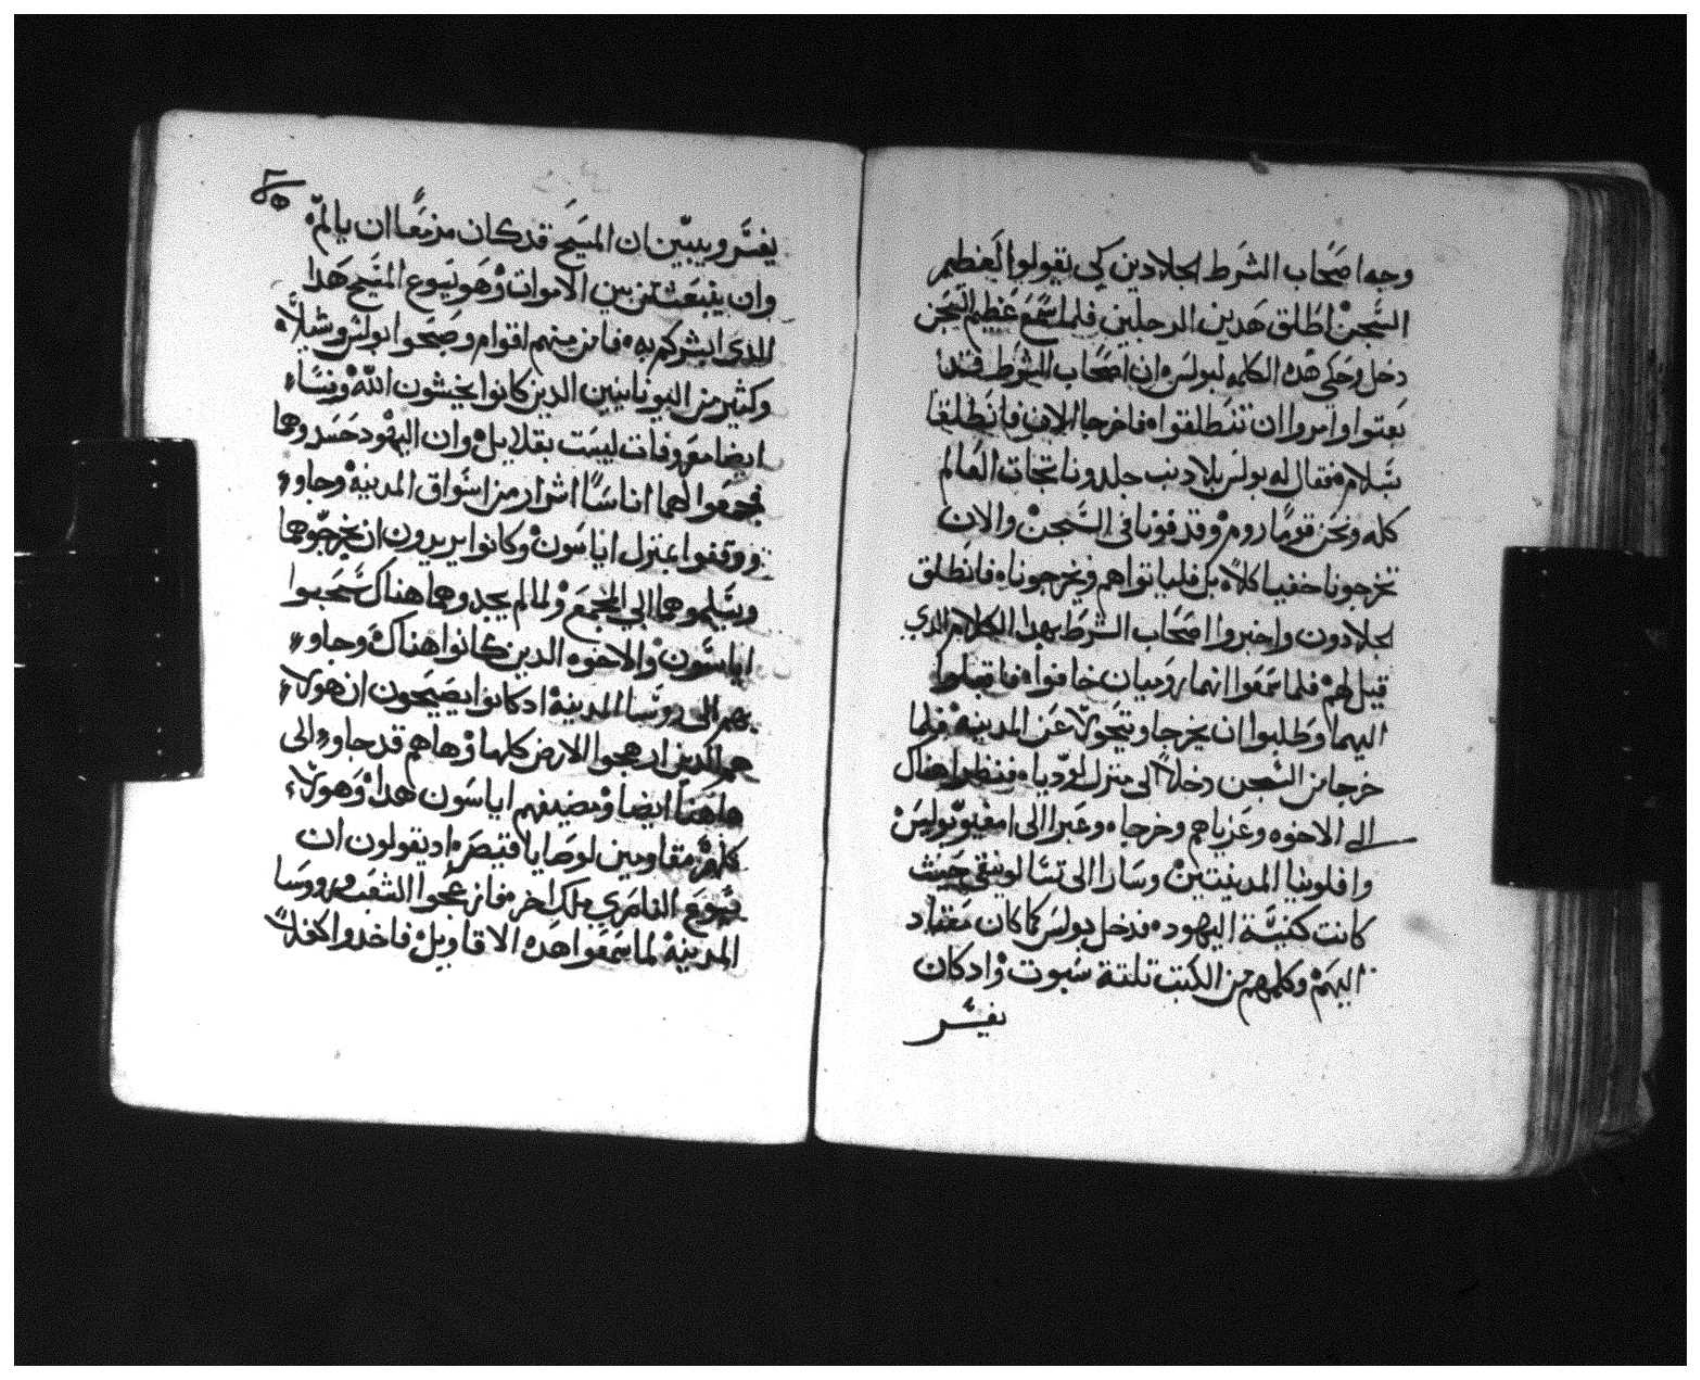 وجه اصحاب الشرط الجلادين كي يقولوا لعظيم
السجن اطلق هدين الرجلين فلما سمع عظيم السجن
دخل وحكى هده الكلمه لبولس ان اصحاب الشرط قد
بعتوا وامروا ان تنطلقوا فاخرجا الان فانطلقا
بسلام فقال له بولس بلا دنب جلدونا تجات العالم
كله ونحن قوما روم وقدفونا في السجن والان
تخرجونا خفيا كلا بل فلياتوا هم ويخرجونا فانطلق
الجلادون واخبروا اصحاب الشرط بهدا الكلام الدي
قيل لهم فلما سمعوا انهما روميان خافوا فاقبلوا
اليهما وطلبوا ان يخرجا ويتحولا عن المدينة فلما
خرجا من السجن دخلا الى منزل لوديا فنظرا هناك
الى الاخوه وعزياهم وخرجا وعبرا الى امفيبوبوليس
وافلونيا المدينتين وسارا الى تسالونيقي حيث
كانت كنيسة اليهود فدخل بولس كما كان معتاد
اليهم وكلمهم من الكتب تلتة سبوت واد كان
يفسر
يفسر ويبين ان المسيح قد كان مزمعا ان يالم
وان ينبعث من بين الاموات وهو يسوع المسيح هدا
الدى ابشركم به فامن منهم اقوام وصحبوا بولس وشيلا
وكثير من اليونانيين الدين كانوا يخشون الله ونساء
ايضا معروفات ليست بقلايل وان اليهود حسدوهما
فجمعوا لهما اناسا اشرار من اسواق المدينة وجاوء
ووقفوا بمنزل اياسون وكانوا يريدون ان يخرجوهما
ويسلموهما الي المجمع ولما لم يجدوهما هناك سحبوا
اياسون والاخوه الدين كانوا هناك وجاوء
بهم الى روسا المدينة اد كانوا يصيحون ان هولاء
هم الدين ارهجوا الارض كلها وها هم قد جاوء الى
هاهنا ايضا ومضيفهم اياسون هدا وهولاء
كلهم مقاومين لوصايا قيصر اد يقولون ان
يسوع الناصري ملك اخر فانزعجوا الشعب وروسا
المدينة لما سمعوا هده الاقاويل فاخدوا كفلا